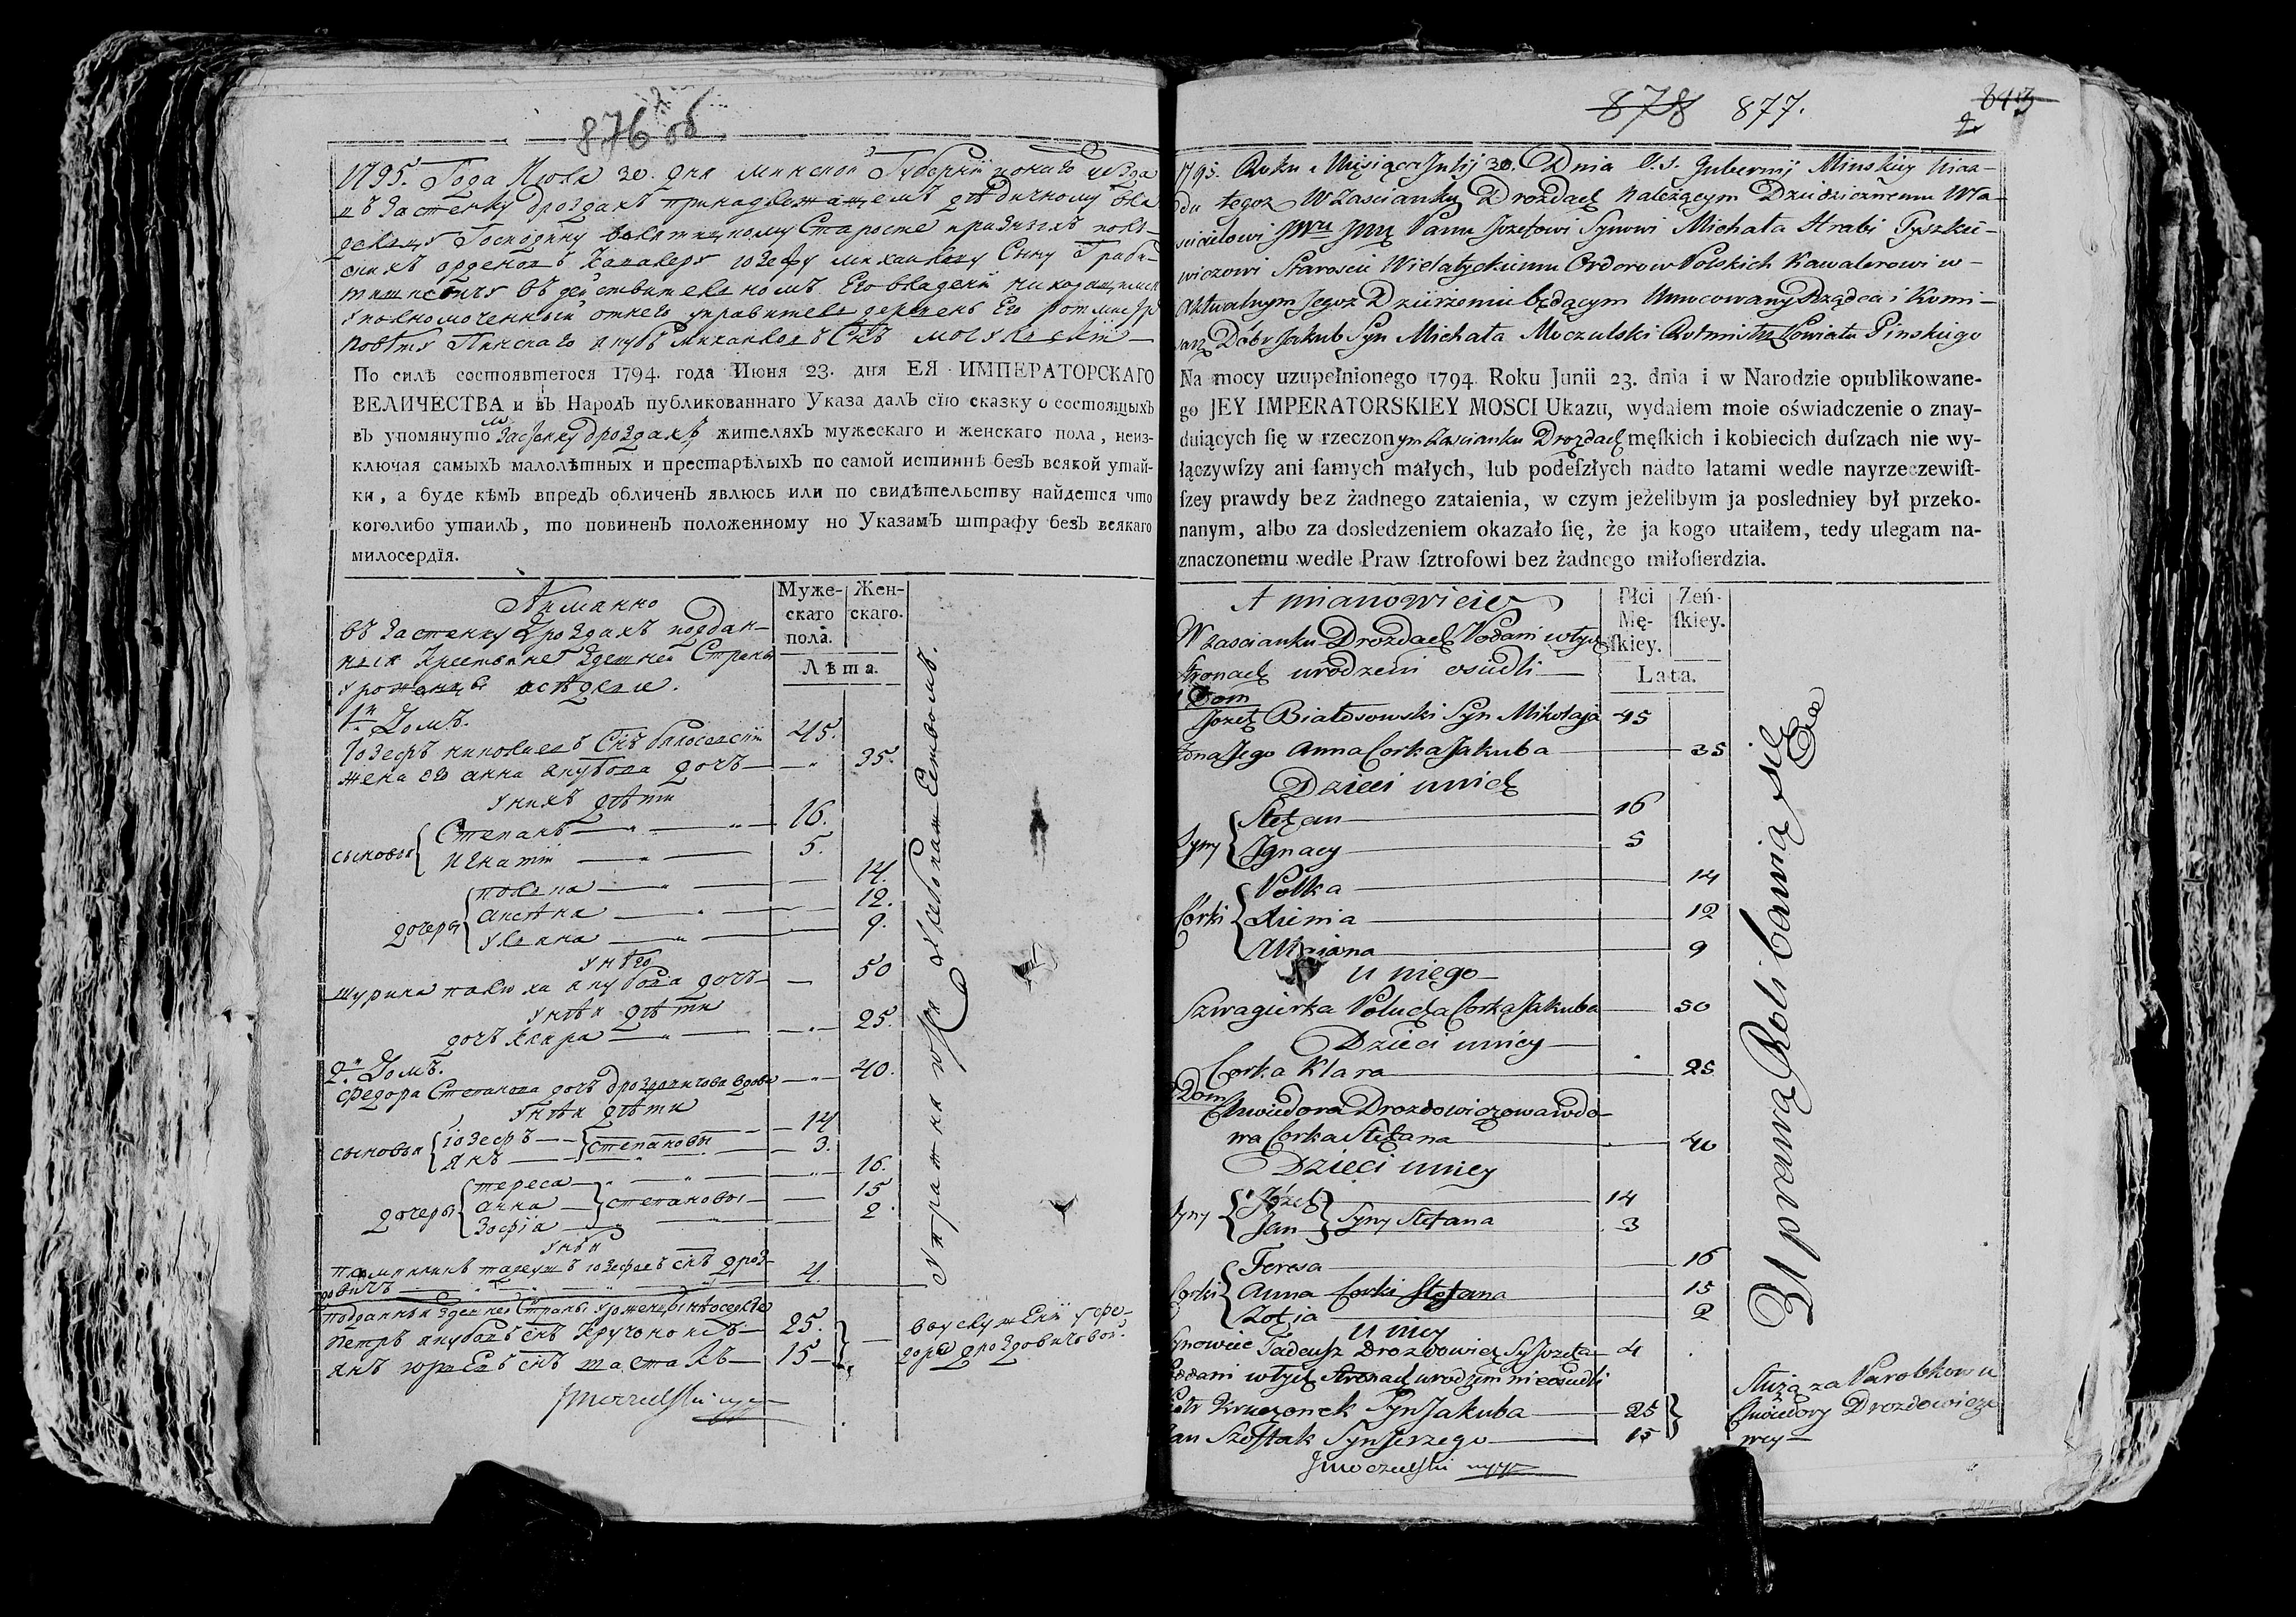 876 об
1795. Года Июля 30. дня Минской Губернии тогожъ уезда
въ Застенку Дроздахъ принадлежащемъ дѣдичному вла
дельцу Господину велятицкому Старосте
орденовъ Кавалеру Юзефу Михайлову Сыну Графу
въ действительномъ Его владени
уполномоченный отнего управитель деревень Его ротмистр
повѣту Пинскаго Якубъ Михайловъ Снъ Мочульский
По силѣ состоявшегося 1794. года Июня 23. дня ЕЯ ИМПЕРАТОРСКАГО
ВЕЛИЧЕСТВА и въ Народъ публикованнаго Указа далъ сїю сказку о состоящыхъ
въ упомянутомъ Застенку дроздахъ жителяхъ мужескаго и женскаго пола, неиз-
ключая самыхъ малолѣтныхъ и престарѣлыхъ по самой истиннѣ безъ всякой утай-
ки, а буде кѣмъ впредъ обличенъ явлюсь или по свидѣтельству найдется что
коголибо утаилъ, то повиненъ положенному по Указамъ штрафу безъ всякаго
милосердїя.
Муже-
скаго
пола.
Жен-
скаго.
Лѣта.
А имянно
въ Застенку Дроздахъ поддан-
ныя Крестьяне Здешней Страны
уроженцы оседлые.
1й Домъ.
Юзефъ николаевъ Снъ Бялосовский 45.
жена его анна якубова дочь 35.
у нихъ дѣти
сыновья
Степанъ 16.
Игнатий 5.
дочеры
полька 14.
аксѣня 12.
ульяна 9.
у него
шурина палюха якубова дочь 50
у нѣя дѣти
дочь клара 25.
2й Домъ.
Федора Степанова дочь дроздовичова вдова 40.
у нѣя дѣти
сыновья
юзефъ 14
янъ 3.
степановы
дочеры
тереса 16.
анна 15
зофїа 2.
степановы
у нѣя
племянникъ тадеушъ юзефовъ снъ дроз-
довичъ 4.
подданныя здешней Страны уроженцы неоседлые
петръ якубовъ снъ Кручонокъ 25.
янъ юрьевъ снъ шастакъ 15
в услужении у фе-
доры дроздовичовой.
Упражняются хлебопашеством.
JMoczulski mpp
878 877.
843
2
1795. Roku Miesiąca Julij 30. Dnia V.S. Gubernij Minskiey Uiaz-
du tegoż W Zascianku Drozdach Należącym Dziedzicznemu Wła-
scicielowi JWu Jmę Panu Jozefowi Synowi Michała Hrabi Tyszkie-
wiczowi Staroscie Wielatyckiemu Orderow Polskich Kawalerowi w
Aktualnym Jegoż Dzierzeniu będącym Umocowany Rządca i Komi-
sarz Dóbr Jakub Syn Michała Moczulski Rotmistrz Powiatu Pinskiego
Na mocy uzupełnionego 1794. Roku Junii 23. dnia i w Narodzie opublikowane-
go JEY IMPERATORSKIEY MOSCI Ukazu, wydałem moie oświadczenie o znay-
duiących ſię w rzeczonym Zascianku Drozdach męſkich i kobiecich duſzach nie wy-
łączywſzy ani ſamych małych, lub podeſzłych nadto latami wedle nayrzeczewiſt-
ſzey prawdy bez żadnego zataienia, w czym jeżelibym ja posledniey był przeko-
nanym, albo za dosledzeniem okazało ſię, że ja kogo utaiłem, tedy ulegam na-
znaczonemu wedle Praw ſztrofowi bez żadnego miłoſierdzia.
Płci
Mę-
ſkiey.
Żeń-
ſkiey.
Lata.
A mianowicie
W zascianku Drozdach Poddani wtych
stronach urodzeni osiedli
1 Dom
Jozef Białosowski Syn Mikołaja 45
Żona Jego Anna Corka Jakuba 35
Dzieci unich
Syny
Stefan 16
Ignacy 5
Córki
Polka 14
Axienia 12
Ulliana 9
u niego
Szwagierka Polucha Corka Jakuba 50
Dzieci uniey
Corka Klara 25
2 Dom
Chwiedora Drozdowiczowa wdo-
wa Corka Stefana 40
Dzieci uniey
Syny
Józef 14
Jan 3
Syny Stefana
Corki
Teresa 16
Anna Corki Stefana 15
Zofja 2
u niey
Synowiec Tadeusz Drozdowicz Sy Jozefa 4
Poddani wtych stronach urodzeni nieosiedli
Piotr Kruczonek Syn Jakuba 25
Jan Szostak Syn Jerzego 15
Służą za Parobkow u
Chwiedory Drozdowiczo
wey
JMoczulski mpp
Uprawą Roli bawią się